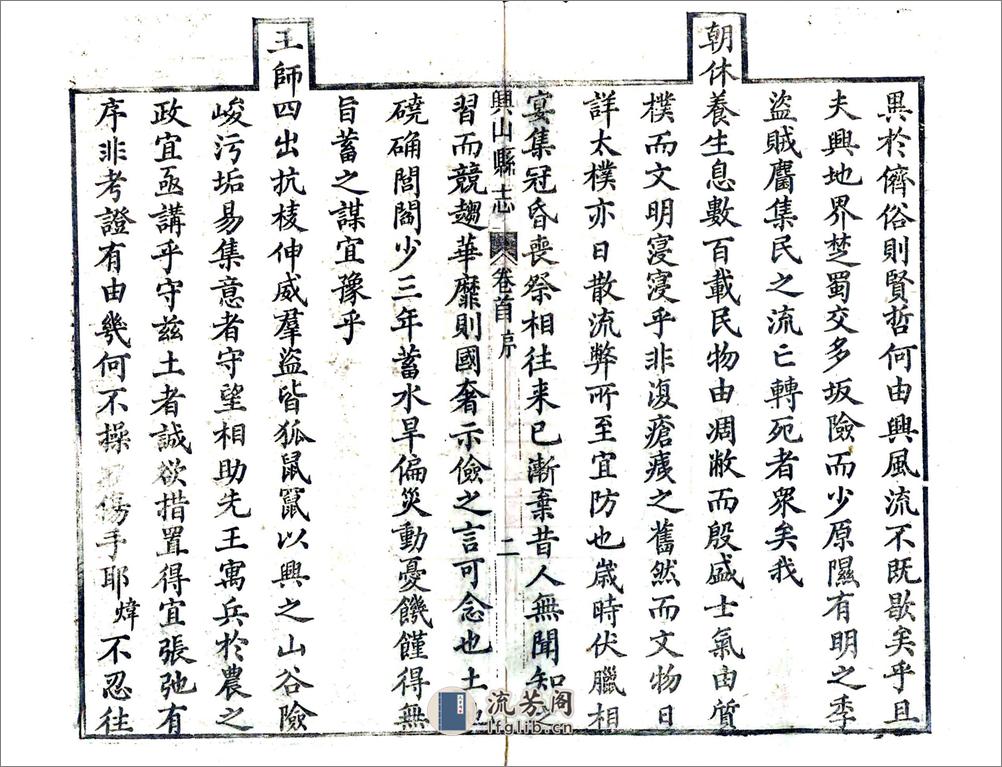 異於儕俗則賢哲何由興風流不既歇矣乎且
夫興地界楚蜀交多坂險而少原隰有明之季
盜賊麕集民之流亡轉死者衆矣我
朝休養生息數百載民物由凋敝而殷盛士氣由質
樸而文明寖寖乎非復瘡痍之舊然而文物日
詳太樸亦日散流弊所至宜防也歲時伏臘相
宴集冠昏喪祭相往来已漸棄昔人無聞知之
興山縣志 卷首序 二
習而競趨華靡則國奢示儉之言可念也土
磽确閭閻少三年蓄水旱偏災動憂饑饉得無
旨蓄之謀宜豫乎
王師四出抗棱伸威羣盜皆狐鼠竄以興之山谷險
峻污垢易集意者守望相助先王寓兵於農之
政宜亟講乎守兹土者誠欲措置得宜張弛有
序非考證有由幾何不操傷手耶煒不忍往
流芳阁
lfglib.cn